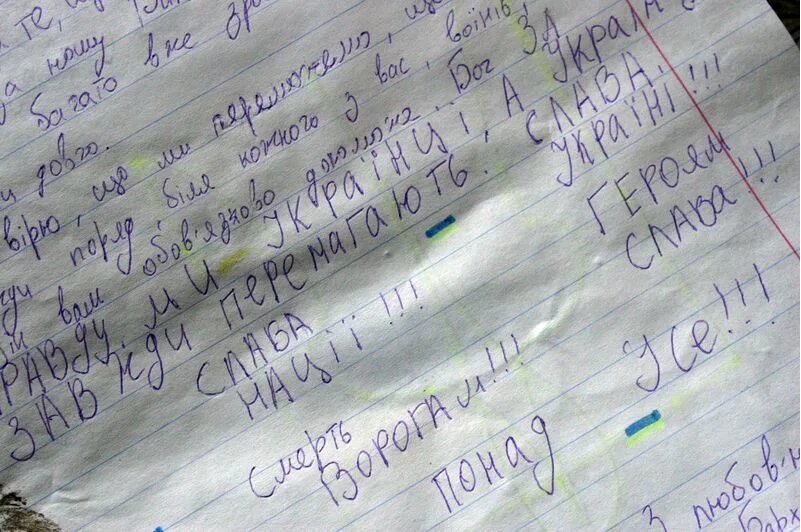 те,
нашу
багато вже зро
довго.
вірю, що ми переможемо, що
ди поряд, біля кожного з вас, воїнів,
вам обов'язково допоможе. Бог ЗА
РАВДУ. МИ - УКРАЇНЦІ. А УКРАЇН
ЗАВЖДИ ПЕРЕМАГАЮТЬ. СЛАВА
УКРАЇНІ!!!
ГЕРОЯМ
СЛАВА!!!
СЛАВА
НАЦІЇ!!!
Смерть
ВОРОГАМ!!!
ПОНАД УСЕ!!!
З любов'ю